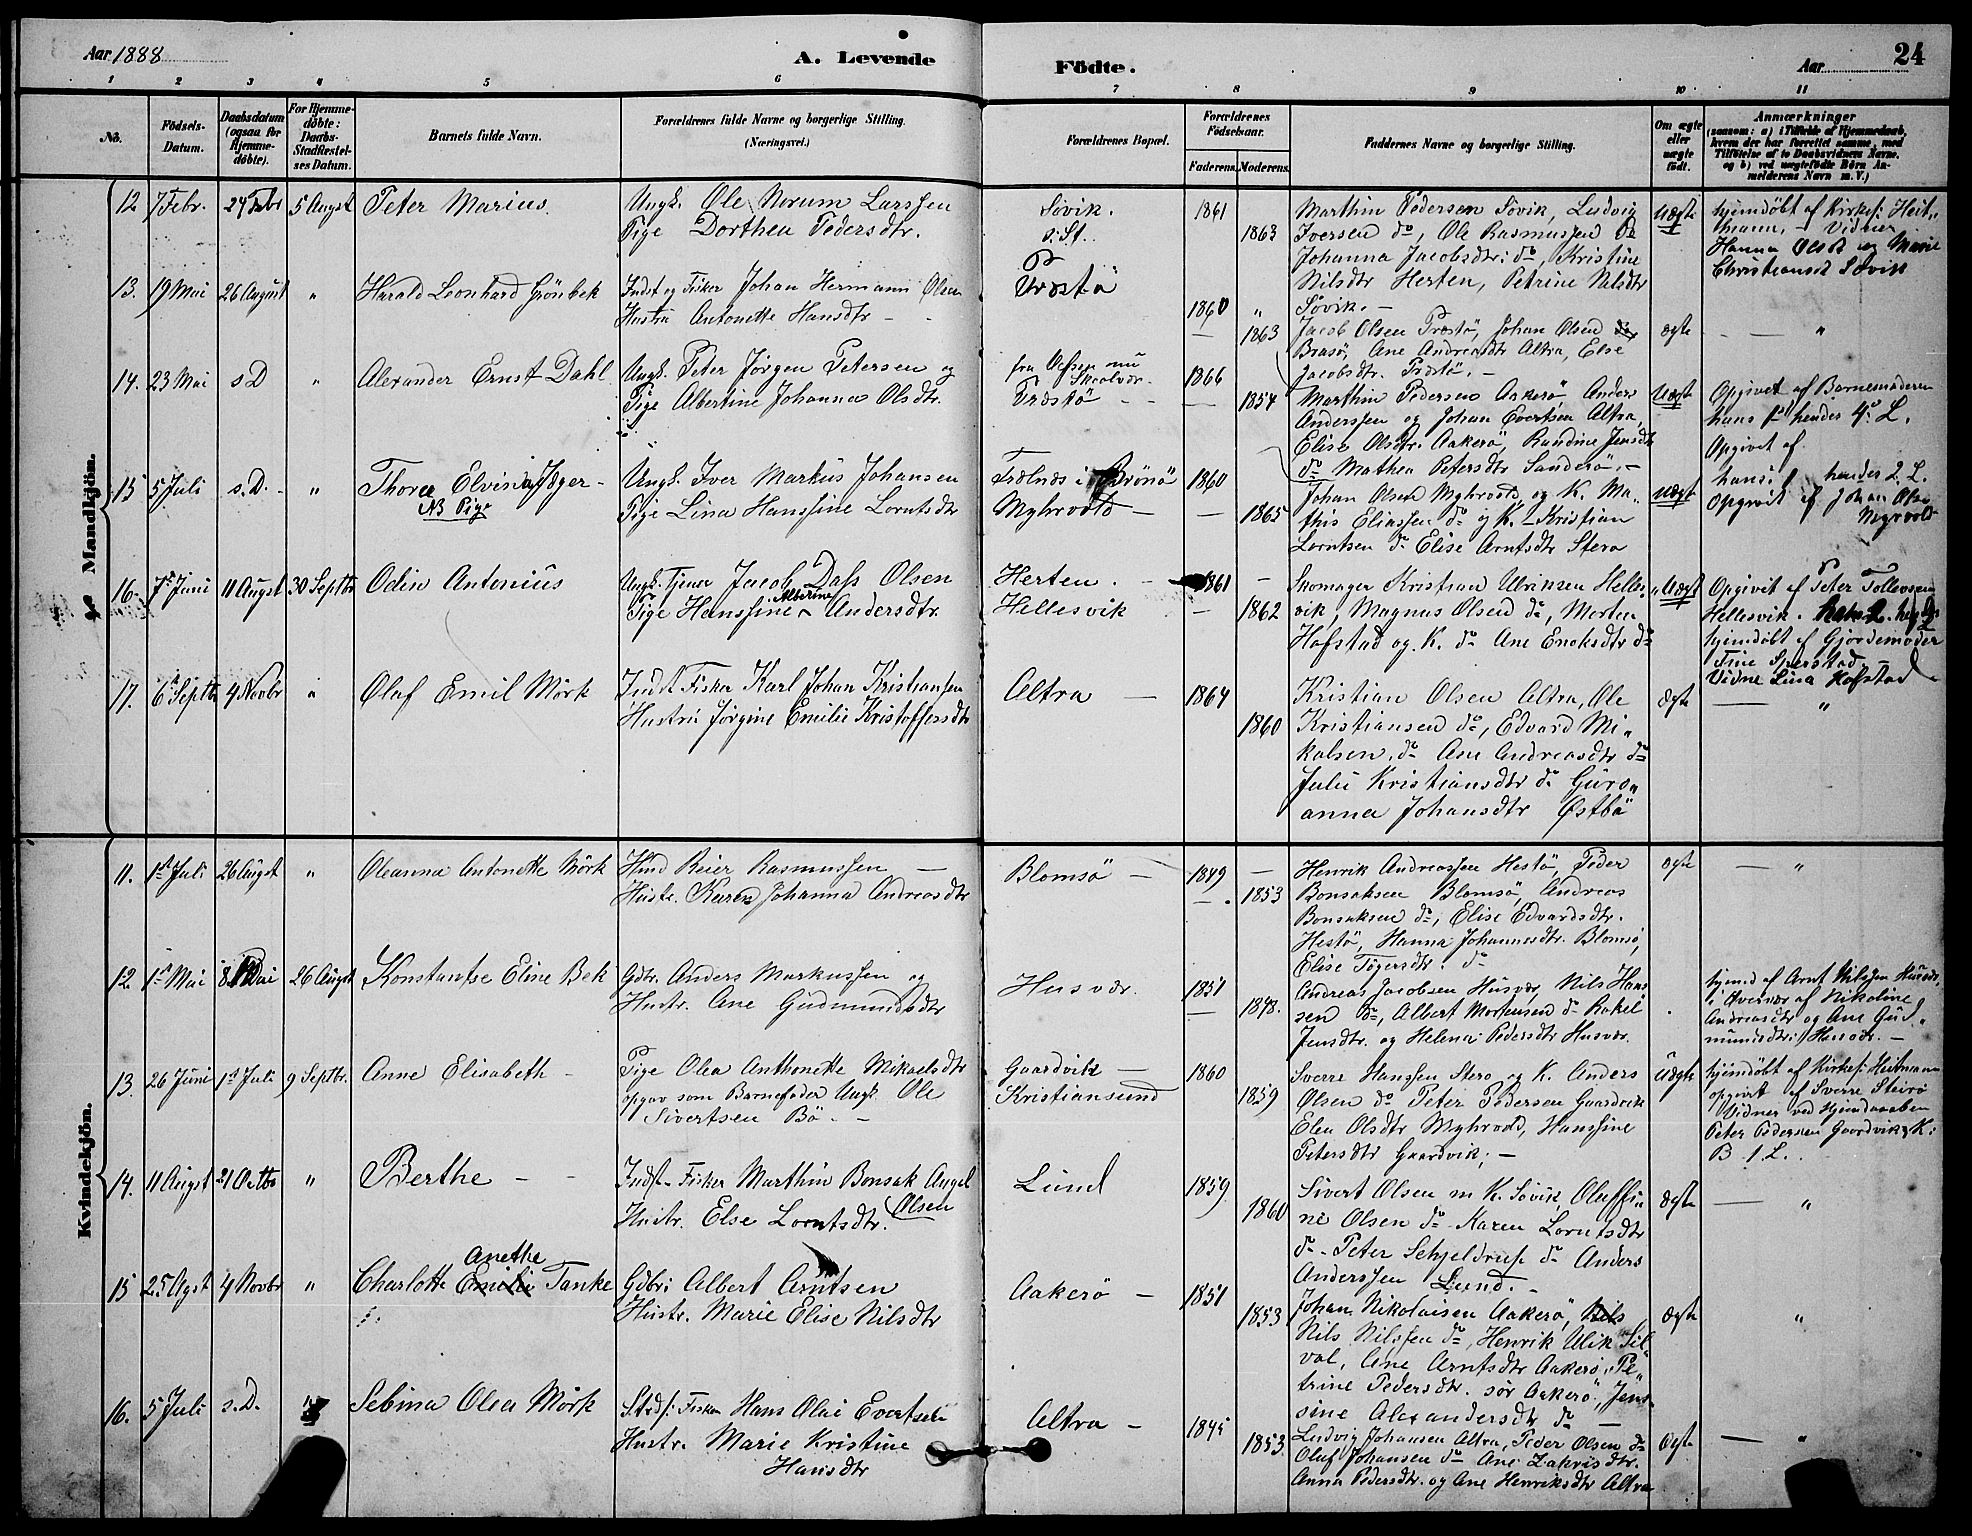 Aar 1888
A. Levende
Födte.
Aar
24
1 2 3 4 5 6 7 8 9 10 11
No.
Födsels-Datum.
Daabsdatum (ogsaa for Hjemmedöbte).
For Hjemmedöbte: Daabs-Stadfæstelses Datum.
Barnets fulde Navn.
Forældrenes fulde Navne og borgerlige Stilling.
(Næringsvei.)
Forældrenes Bopæl.
Forældrenes Födselsaar.
Faderens. Moderens.
Faddernes Navne og borgerlige Stilling.
Om ægte eller uægte födt.
Anmærkninger
(saasom: a) i Tilfælde af Hjemmedaab, hvem der har forrettet samme, med Tilföielse af to Daabsvidners Navne, og b) ved uægtefödte Börn Anmelderens Navn m. V.)
Mandkjön.
12 7 Febr. 24 Febr 5 Augst Peter Marius.
Ungk. Ole Norum Larssen
Pige Dorthea Pedersdtr.
Søvik.
s. St.
1861
1863
Marthin Pedersen Søvik, Ludvig
Iversen do, Ole Rasmussen do
Johanna Jacobsdtr: do, Kristine
Nilsdtr Herten, Petrine Nilsdtr
Søvik. –
Uægte
hjemdöbt af Kirkes: Heit„
mann, – Vidner
Hanna Olsdt og Marie
Christiansd Søvik
13. 19 Mai 26 August „ Harald Leonhard Grönbek
Indst og Fisker Johan Hermann Olsen
Hustru Antonette Hansdtr –
Præstö
1860 „
– 1863
Jacob Olsen Præstö, Johan Olsen
Brasö, Ane Andreasdtr Altra, Else
Jacobsdtr. Præstö. –
ægte
– „
14. 23 Mai s D „ Alexander Ernst Dahl
Ungk. Peter Jörgen Petersen og
Pige Albertine Johanna Olsdtr.
fra Vefsen nu
Skaalvær.
Præstö – –
1866
– 1854
Marthin Pedersen Aakerö, Anders
Anderssen og Johan Evertsen Altra,
Elise Olsdtr. Aakerö, Randine Jensdt
do Mathea Petersdtr Sanderö. –
Uægt
Opgivet af Barnemoderen
hans 1ste hendes 4de L.
Opgivet af
15 5 Juli s. D. – „ Thora Elvina Jæger –
NB Pige
Ungk. Iver Markus Johansen
Pige Lina Hanssine Lorntsdtr
Trælnæs i Brönö
Myhrvold –
1860
– 1865
Johan Olsen Myhrvold, og K. Ma„
this Eliassen do og K. – Kristian
Lorntsen do Elise Arntsdtr Stera
Uægt
hans 1 hendes 2 L.
Opgivit af Johan Olse
Myrvold
16. 7de Juni 11 Augst 30 Septbr Odin Antonius
Ungk. Tjener Jacob Dass Olsen
Pige Hanssine Albertine Andersdtr.
Herten. –
Hellesvik
1861 –
– 1862
Skomager Kristian Ulriksen Helles
vik, Magnus Olsen do, Morten
Hofstad og K. do Ane Enoksdtr do
Uægt
Opgivit af Peter Tollevsen
Hellesvik.
hjemdöbt af Gjordemoder
Tine Sperstad.
Vidne Lina Hofstad
17. 6te Septbr 4 Novbr „ Olaf Emil Mörk
Indst Fisker Karl Johan Kristiansen
Hustru Jörgine Emilie Kristoffersdtr
Altra –
1864
1860
Kristian Olsen Altra, Ole
Kristiansen do, Edvard Mi„
kalsen, do Ane Andreasdtr do
Julie Kristiansdtr do Guro„
anna Johansdtr Østbö
Ægte
– „
Kvindekjön.
11. 1st Juli 26 Augst „ Oleanna Antonette Mörk
Hmd Reier Rasmussen –
Hustr. Karen Johanna Andreasdtr
Blomsö –
1849 –
– . 1853
Henrik Andreassen Hestö, Peder
Bonsaksen Blomsö, Andreas
Bonsaksen do, Elise Edvardsdtr.
Hestö, Hanna Johannesdtr. Blomsö,
Elise Tögersdtr. do
ægte
– „
12 1st Mai 8. Mai 26 Augst Konstantse Eline Bek
Gdbr. Anders Markussen og
Hustr. Ane Gudmundsdtr
Husvær.
1851
– 1848.
Andreas Jacobsen Husvær, Nils Hans
sen do, Albert Mortensen do Rakel
Jensdtr. og Helena Pedersdtr Husvær.
hjemd af Arnt Nilssen Husvær,
i Overvær af Nikoline
Andreasdtr og Ane Gud„
mundsdtr: Husvær. –
13. 26 Juni 1st Juli 9 Septbr. Anne Elisabeth –
Pige Olea Anthonette Mikaelsdtr
opgav som Barnefader Ungk. Ole
Sivertsen Bö. –
Gaardvik –
Kristiansund
1860
1859
Sverre Hanssen Stero og K. Anders
Olsen do Peter Pedersen Gaardvik
Elen Olsdtr Myhrvold, Hanssine
Petersdtr Gaardvik; –
Uægte
hjemdöbt af Kirkes: Heitmann
opgivet af Sverre Steirö
Vidner ved Hjemdaaben
Peter Pedersen Gaardvik & K:
B 1 L.
14. 11 Augst 21 Octbr „ Berthe – –
Indst – Fisker Marthin Bonsak Angel
Olsen
Hustr. Else Lorntsdtr.
Lund
1859
1860
Sivert Olsen m K. Søvik, Oluffi„
ne Olsen do – Karen Lorntsdtr
do – Peter Schjeldrup do Anders
Anderssen Lund. –
Ægte
– „
15 25 Agst 4 Novbr „ Charlotte Anethe Emilie Tanke
Gdbr: Albert Arntsen
Hustr. Marie Elise Nilsdtr
Aakerö –
1851
1853
Johan Nikolaisen Aakerö, Nils
Nils Nilssen do, Henrik Ulik Sil„
val, Ane Arntsdtr Aakerö, Pe„
trine Pedersdtr. sör Aakerö, Jens„
sine Alexandersdtr do –
Ægte
„
16. 5 Juli s. D. Sebina Olea Mörk
Strds: Fisker Hans Olai Evertsen
Hustr. Marie Kristine
Hansdtr
Altra –
1845
1853
Ludvig Johansen Altra, Peder Olsen do
Oluf Johansen do Ane Zakrisdtr.
Anna Pedersdtr. og Ane Henriksdtr Altra
Ægte
– „